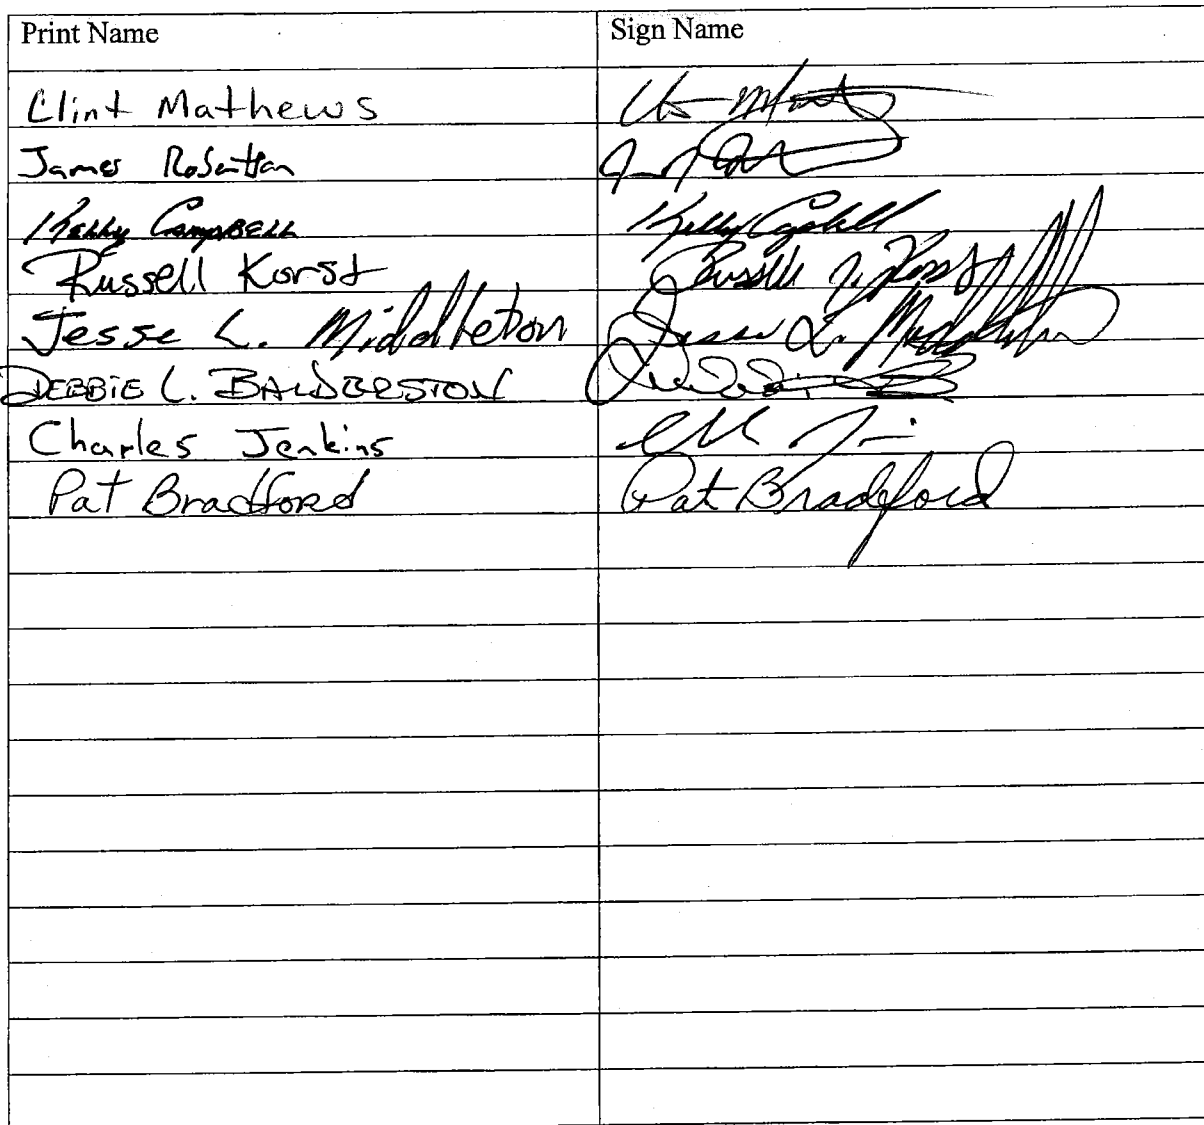 Print Name Sign Name
Clint Mathews
James
Kelly Campbell Kelly Campbell
Russell Korst Russell J. Korst
Jesse L. Middleton Jesse L. Middleton
DEBBIE L. BALDERSTON
Charles Jenkins
Pat Bradford Pat Bradford